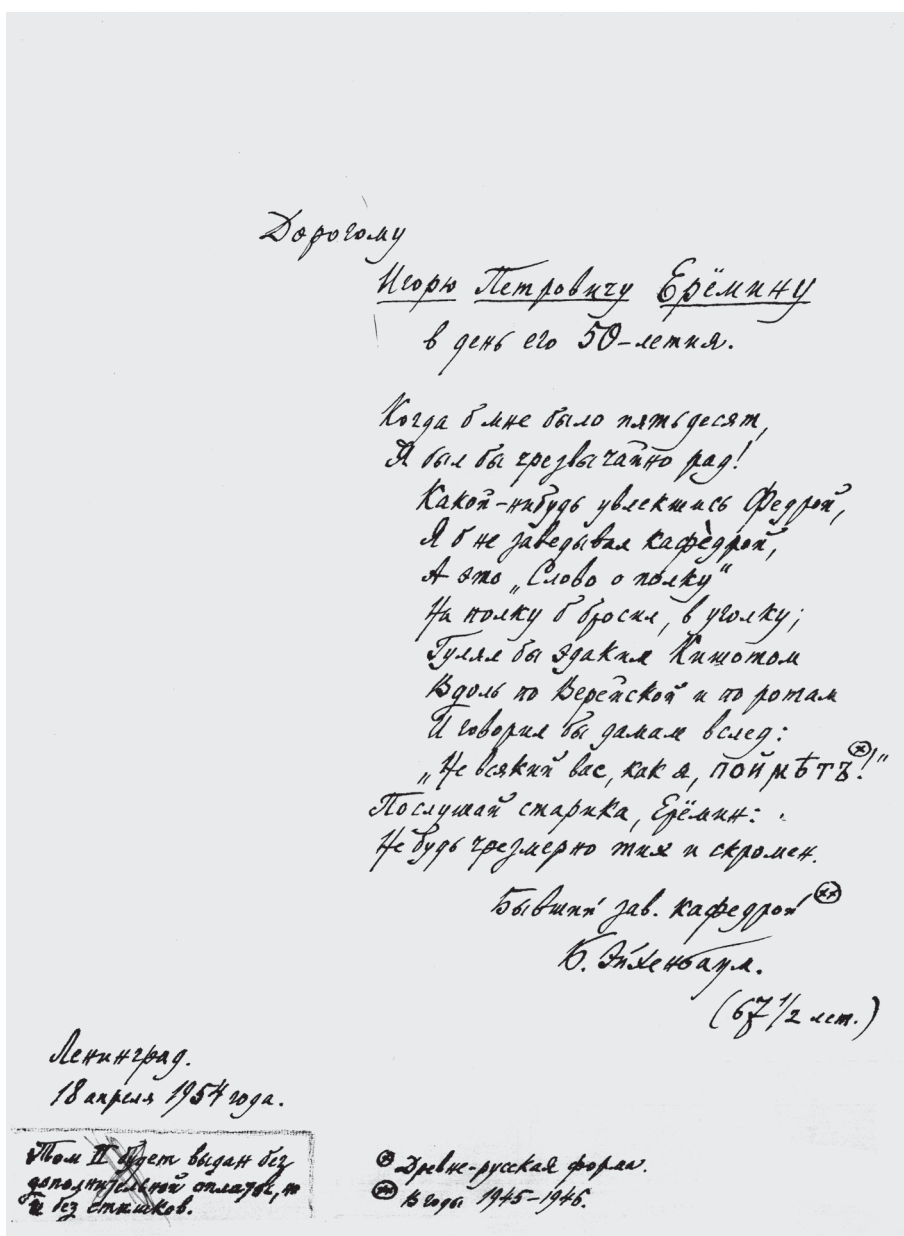 Дорогому
Игорю Петровичу Ерёмину
в день его 50-летия.
Когда б мне было пятьдесят,
Я был бы чрезвычайно рад!
Какой-нибудь увлекшись Федрой,
Я б не заведывал кафедрой,
А это „Слово о полку“
На полку б бросил, в уголку;
Гулял бы эдаким Кишотом
Вдоль по Верейской и по ротам
И говорил бы дамам вслед:
„Не всякий вас, как я, поймѣтъ ⊛!“
Послушай старика, Ерёмин:
Не будь чрезмерно тих и скромен.
Бывший зав. кафедрой ⊛⊛
Б. Эйхенбаум.
(67 1/2 лет.)
Ленинград.
18 апреля 1954 года.
Том II будет выдан без
дополнительной оплаты, но
и без стишков.
⊛ Древне-русская форма.
⊛⊛ В годы 1945–1946.